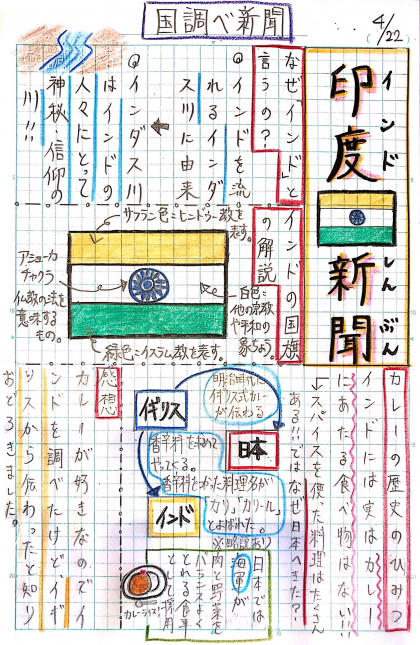 国調べ新聞
4/22
印度新聞
インド しんぶん
なぜ「インド」と
言うの?
@インドを流
れるインダ
ス川に由来
@インダス川
はインドの
人々にとって
神秘・信仰の
川!!
インドの国旗
の解説
サフラン色=ヒンドゥー教を表す。
アショーカ
チャクラ
仏教の法を
意味する
もの。
白色=
他の宗教
や平和の
象ちょう。
緑色=イスラム教を表す。
カレーの歴史のひみつ
インドには実はカレー
にあたる食べ物はない!!
↓スパイスを使った料理はたくさん
ある!!ではなぜ日本へきた?
明治時代に
イギリス式カレー
が伝わる
イギリス
日本
インド
香辛料を求めて
やってくる。
香辛料をつかった料理名が
「カリ」「カリール」
とよばれた。
※略説あり
日本では
海軍が
肉と野菜を
バランスよく
とれる食事
として採用
カレーライス!
感想
カレーが好きなのでイ
ンドを調べたけどイギ
リスから伝わったと知り
おどろきました。